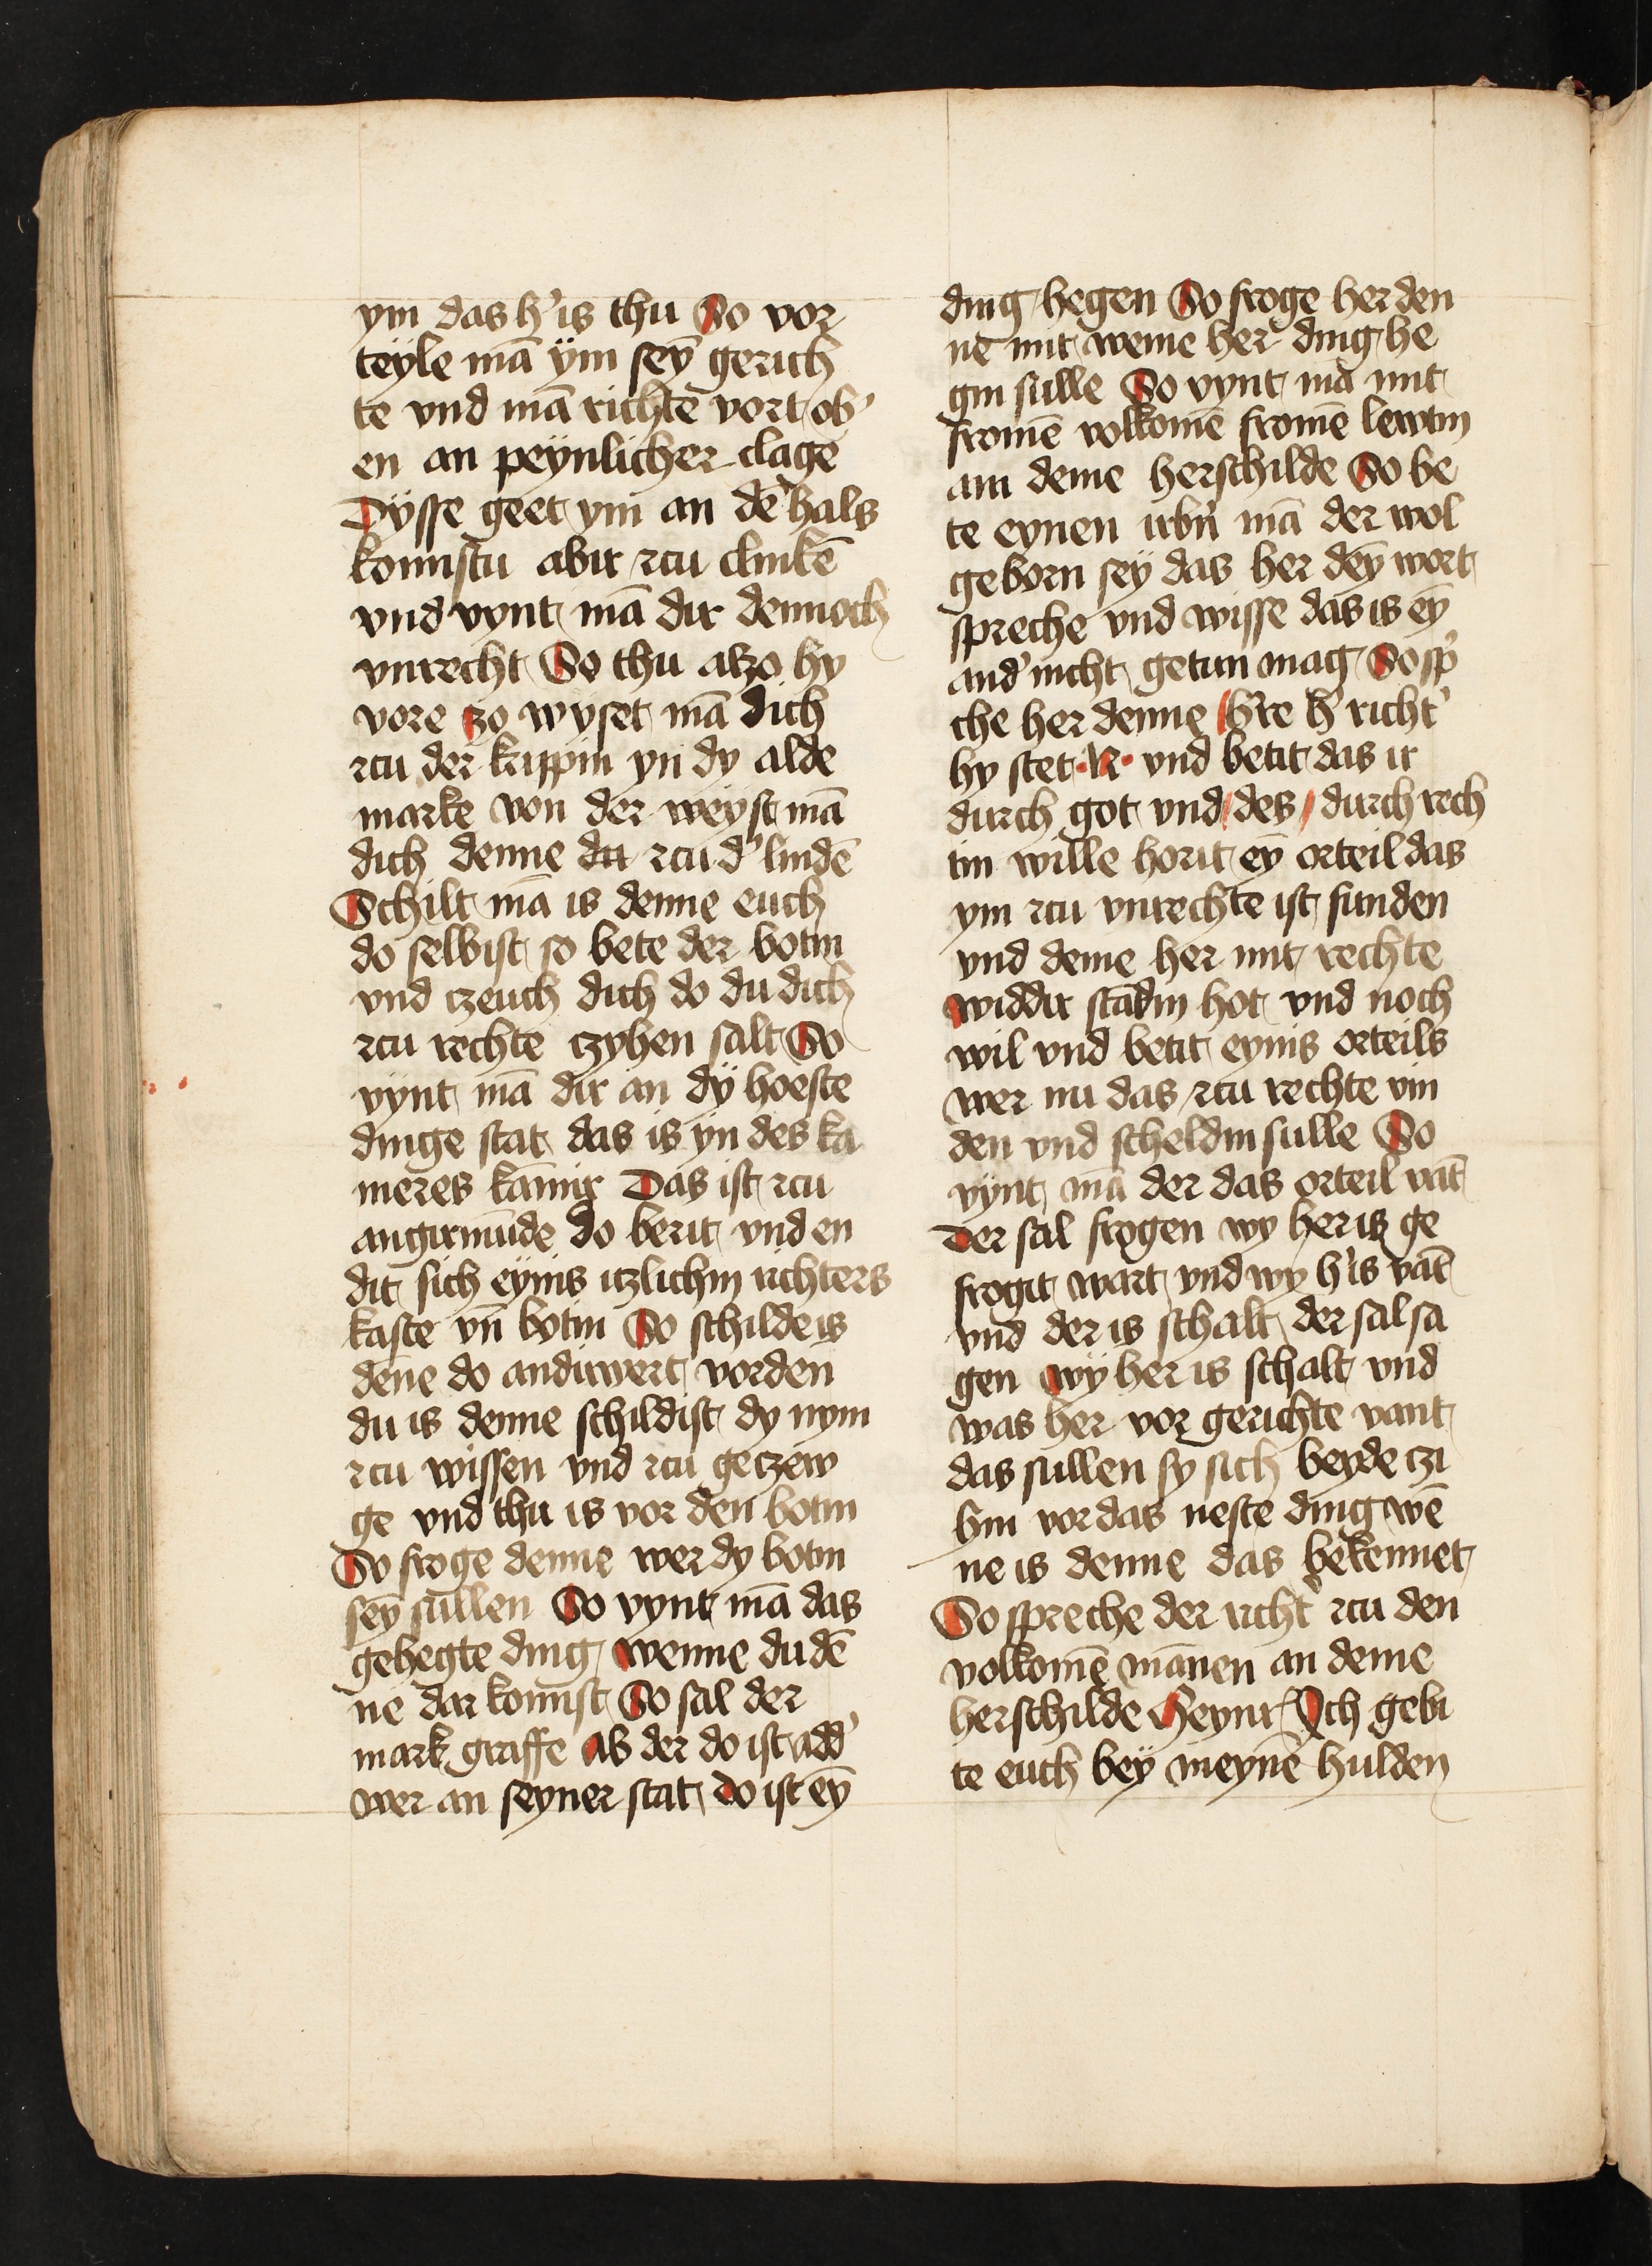 ym das h' is thu So vor
teyle mā ÿm sey̅ gerich
te vnd mā richte vort ob'
en an peynlicher clage
Dysse geet ym an dē hals
komistu abir rcu clinkē
vnd vynt mā dir dennoch
vnrecht So thu alzo hy
vore zo wyset mā dich
rcu der krippin yn dy alde
marke von der weyst mā
dich denne du rcu d' lindē
Schilt mā is denne euch
do selbist so bete der botin
vnd czeuch dich do du dich
rcu rechte czyhen salt So
vynt mā dir an dÿ hoeste
dinge stat das is yn des ka
meres kāmir Das ist rcu
angirmūde do berit vnd en
dit sich eynis itzlichin richters
kaste vn̄ botin So schilde is
dēne do andirwert vorden
du is denne schildist dy nym
rcu wissen vnd rcu geczew
ge vnd thu is vor den botin
So froge denne wer dy botin
sey̅ sullen So vynt mā das
gehegte ding wenne du dē
ne dar komist So sal der
mark graffe ab der do ist add'
wer an seyner stat do ist ey̅
ding hegen So froge her den
ne mit weme her ding he
gin sulle So vynt mā mit
fromē volkomē fromē lewtin
am deme herschilde So be
te eynen irbn̄ mā der wol
geborn sey das her dey̅ wort
spreche vnd wisse das is ey̅
and' nicht getun mag So sp'
che her denne h're h' richt'
hy stet .N. vnd betit das ir
durch got vnd des durch rech
tin wille horit ey̅ orteil das
ym rcu vnrechte ist funden
vnd deme her mit rechte
widdir stādin hot vnd noch
wil vnd betit eynis orteils
wer nu das rcu rechte vin
den vnd scheldin sulle So
vynt mā der das orteil vāt
Der sal frogen wy her is ge
frogit wart vnd wy h' is vāt
vnd der is schalt der sal sa
gen wy her is schalt vnd
was her vor gerichte vant
das sullen sy sich beyde czi
hin vor das neste ding wē
ne is denne das bekennet
So spreche der richt' rcu den
volkomē mānen an deme
herschilde Heynr Ich gebi
te euch bey meynē hulden